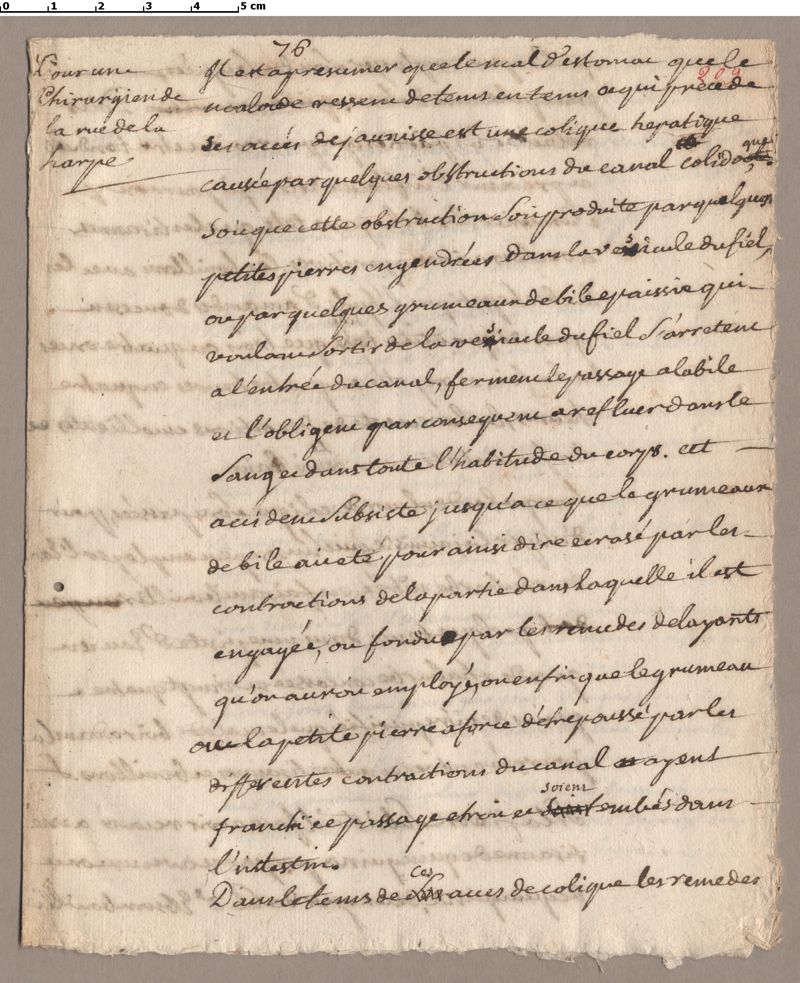 0 1 2 3 4 5 cm
76
209
Pour un
Chirurgien de
la rue de la
harpe
Il est a presumer que le mal d'estomac que le
malade ressent de tems en tems a qui precede
ses accés de jaunisse est une colique hepatique
causée par quelques obstructions du canal colidoque,
Soit que cette obstruction Soit produite par quelques
petites pierres engendrées dans la vesicule du fiel,
ou par quelques grumeaux de bile epaissie qui
voulant Sortir de la vesicule du fiel S'arretent
a l'entrée du canal, ferment le passage a la bile
et l'obligent par consequent a refluer dans le
Sang et dans toute l'habitude du corps. cet
accident Subsiste jusqu'a ce que le grumeaux
de bile ait eté pour ainsi dire ecrasé par les
contractions de la partie dans laquelle il est
engagée, ou fondu par les remedes delayants
qu'on auroit employé, ou enfin que le grumeau
ou la petite pierre a force d'etre poussé par les
differentes contractions du canal ayent
franchi ce passage etroit et soient tombés dans
l'intestin.
Dans le tems de ces acces de colique les remedes